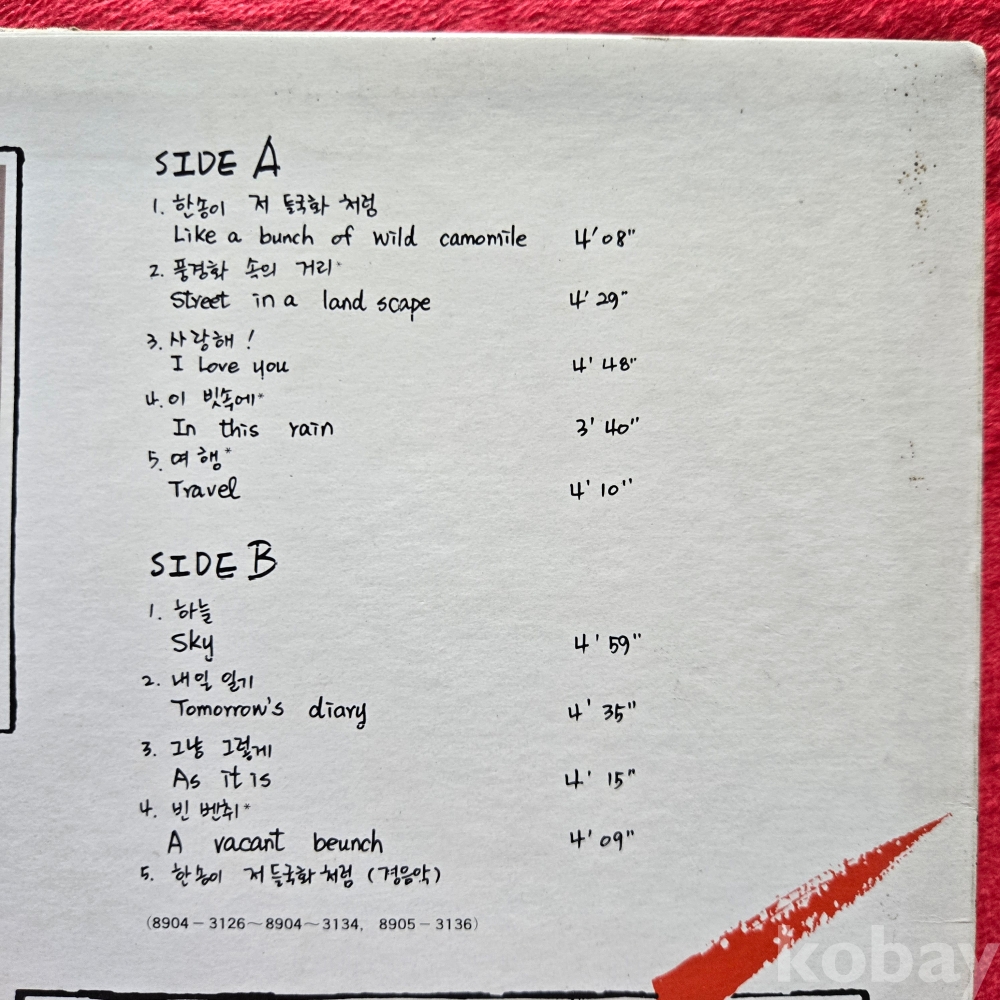 SIDE A
1. 한송이 저 들국화 처럼
Like a bunch of wild camomile 4'08"
2. 풍경화 속의 거리*
Street in a land scape 4'29"
3. 사랑해!
I Love you 4'48"
4. 이 빗속에*
In this rain 3'40"
5. 여행*
Travel 4'10"
SIDE B
1. 하늘
Sky 4'59"
2. 내일 일기
Tomorrow's diary 4'35"
3. 그냥 그렇게
As it is 4'15"
4. 빈 벤취*
A vacant beunch 4'09"
5. 한송이 저 들국화 처럼 (경음악)
(8904-3126~8904~3134, 8905-3136)
kobay